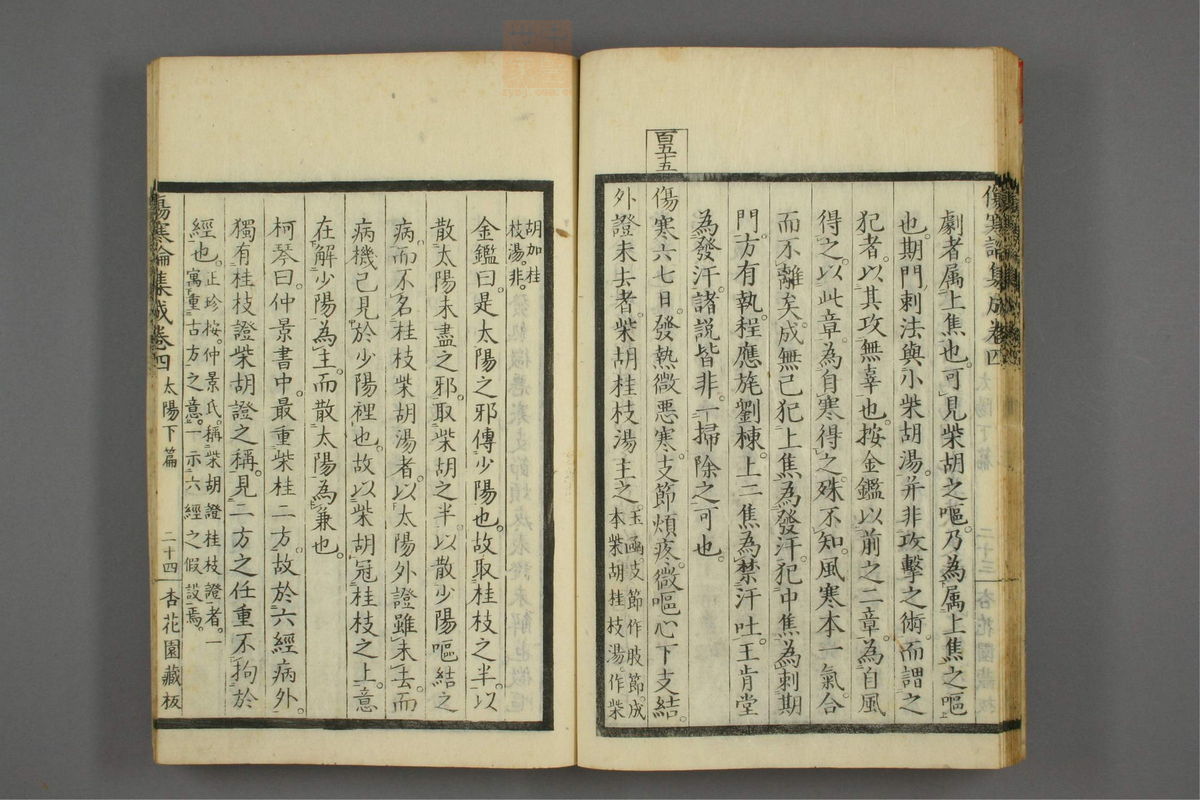 傷寒論集成卷四
劇者。属上焦也。可見柴胡之嘔。乃為属上焦之嘔
也。期門刺法與小柴胡湯。并非攻擊之術。而謂之
犯者。以其攻無辜也。按金鑑以前之二章。為自風
得之。以此章。為自寒得之。殊不知。風寒本一氣合
而不離矣。成無己犯上焦為發汗。犯中焦為刺期
門。方有執。程應旄劉棟。上二焦為禁汗吐。王肯堂
為發汗。諸説皆非。一掃除之可也。
百五十五
傷寒六七日。發熱微惡寒。支節煩疼。微嘔心下支結。
外證未去者。柴胡桂枝湯主之。玉函支節作肢節。成
本柴胡桂枝湯。作柴
胡加桂
枝湯。非。
金鑑曰。是太陽之邪傳少陽也。故取桂枝之半。以
散太陽未盡之邪。取柴胡之半。以散少陽嘔結之
病。而不名桂枝柴胡湯者。以太陽外證雖未去。而
病機已見於少陽裡也。故以柴胡冠桂枝之上。意
在解少陽為主。而散太陽為兼也。
柯琴曰。仲景書中。最重柴桂二方。故於六經病外。
獨有桂枝證柴胡證之稱。見二方之任重不拘於
經也。正珍按。仲景氏。稱柴胡證桂枝證者。一
寓重古方之意。一示六經之假設焉。
傷寒論集成卷四 太陽下篇 二十四 杏花園藏板